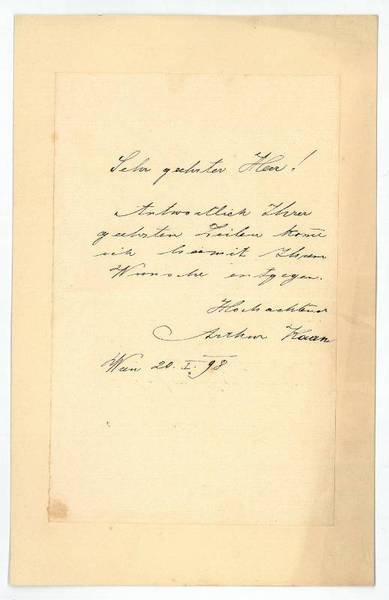 Sehr geehrter Herr!
Antwortlich Ihrer
geehrten Zeilen kom̄e
ich hiemit Ihrem
Wunsche entgegen.
Hochachtend
Arthur Kaan
Wien 20. I. 98